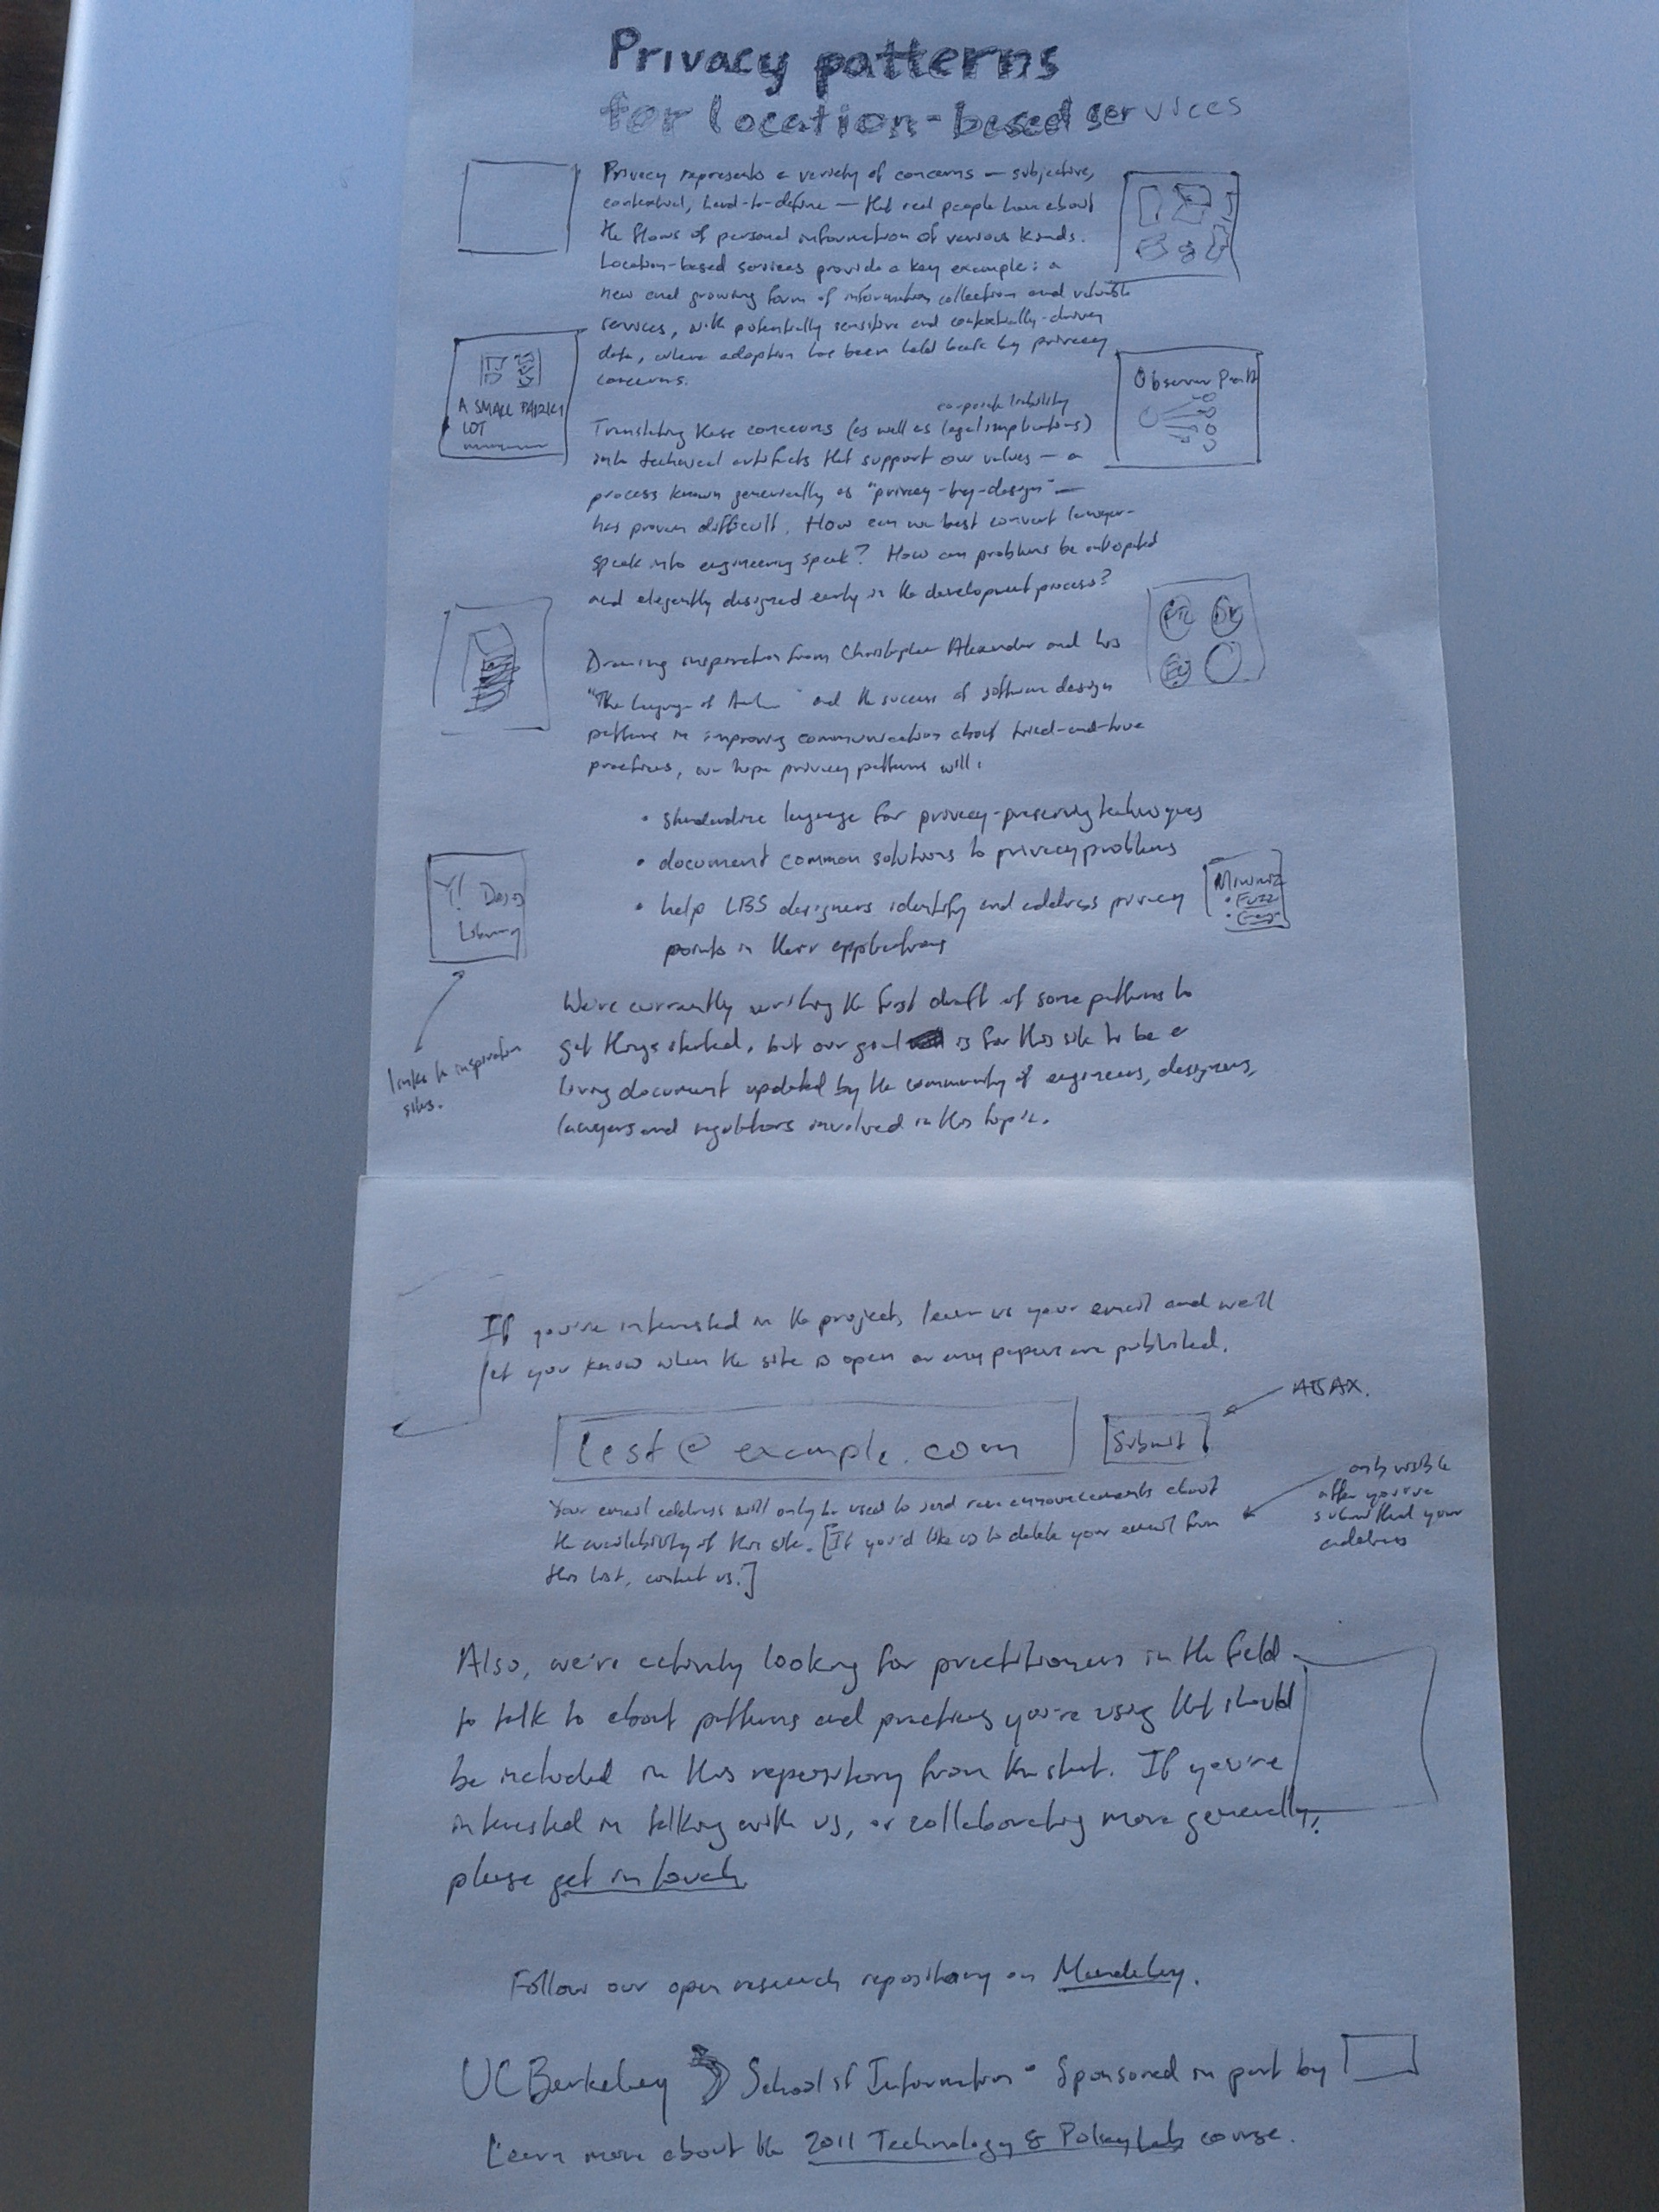 Privacy patterns
for location-based services
Privacy represents a variety of concerns — subjective,
contextual, hard-to-define — that real people have about
the flows of personal information of various kinds.
Location-based services provide a key example: a
new and growing form of information collection and valuable
services, with potentially sensitive and contextually-driven
data, where adoption has been held back by privacy
concerns.
A SMALL PARKING
LOT
Observer
corporate liability
Translating these concerns (as well as legal implications)
into technical artifacts that support our values — a
process known generically as "privacy-by-design" —
has proven difficult. How can we best convert lawyer-
speak into engineering speak? How can problems be anticipated
and elegantly designed early in the development process?
Drawing inspiration from Christopher Alexander and his
"The language of and the success of software design
patterns in improving communication about tried-and-true
practices, we hope privacy patterns will:
• standardize language for privacy-preserving techniques
• document common solutions to privacy problems
• help LBS designers identify and address privacy
points in their applications
Y! Design
Library
Minimiz
• Fuzz
links to inspiration
sites.
We're currently writing the first draft of some patterns to
get things started, but our goal is for this site to be a
living document updated by the community of engineers, designers,
lawyers and regulators involved in this topic.
If you're interested in the project, leave us your email and we'll
let you know when the site is open or any papers are published.
AJAX.
test@example.com
Submit
Your email address will only be used to send rare announcements about
the availability of this site. [If you'd like us to delete your email from
this list, contact us.]
only visible
after you've
submitted your
address
Also, we're actively looking for practitioners in the field
to talk to about patterns and practices you're using that should
be included in this repository from the start. If you're
interested in talking with us, or collaborating more generally,
please get in touch.
Follow our open research repository on Mendeley.
UC Berkeley School of Information · Sponsored in part by
Learn more about the 2011 Technology & Policy Lab course.